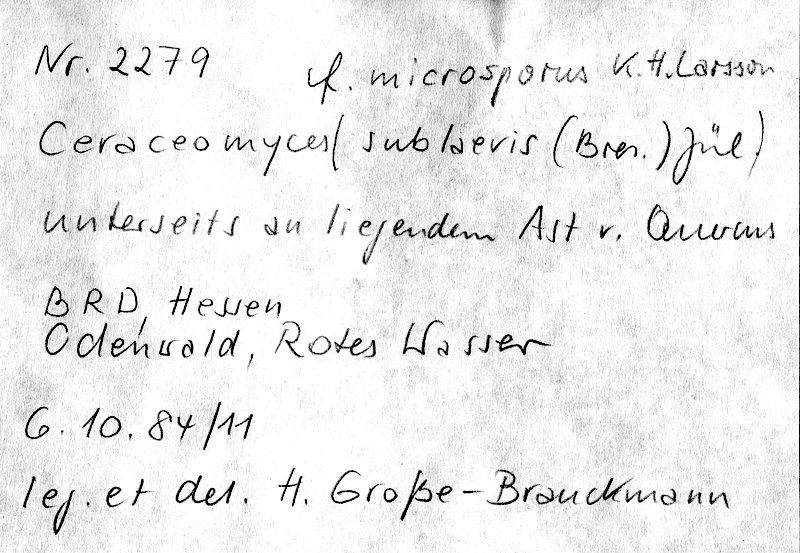 Nr. 2279 cf. microsporus K.H. Larsson
Ceraceomyces (sublaevis (Bres.) Jül)
unterseits an liegendem Ast v. Quercus
BRD, Hessen
Odenwald, Rotes Wasser
6. 10. 84/11
leg. et det. H. Große-Brauckmann